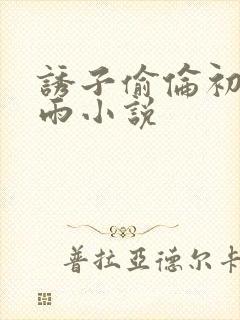 誘子偷倫初
雨小説
普拉亞德尔卡